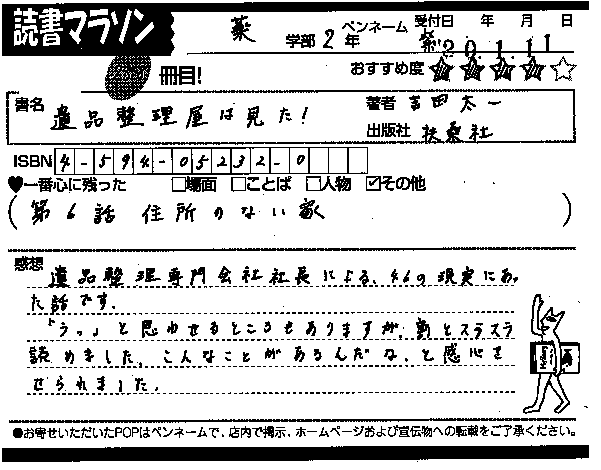 読書マラソン
薬 学部 2 年 ペンネーム 受付日 年 月 日
紫 20.1.11
冊目! おすすめ度 ★★★★☆
書名 遺品整理屋は見た! 著者 吉田太一
出版社 扶桑社
ISBN 4-594-05232-0
♥一番心に残った □場面 □ことば □人物 ☑その他
(第6話 住所のない家)
感想 遺品整理専門会社社長による、46の現実にあっ
た話です。
「うっ」と思わせるところもありますが、割とスラスラ
読めました。こんなことがあるんだな、と感心さ
せられました。
●お寄せいただいたPOPはペンネームで、店内で掲示、ホームページおよび宣伝物への転載をご了承ください。